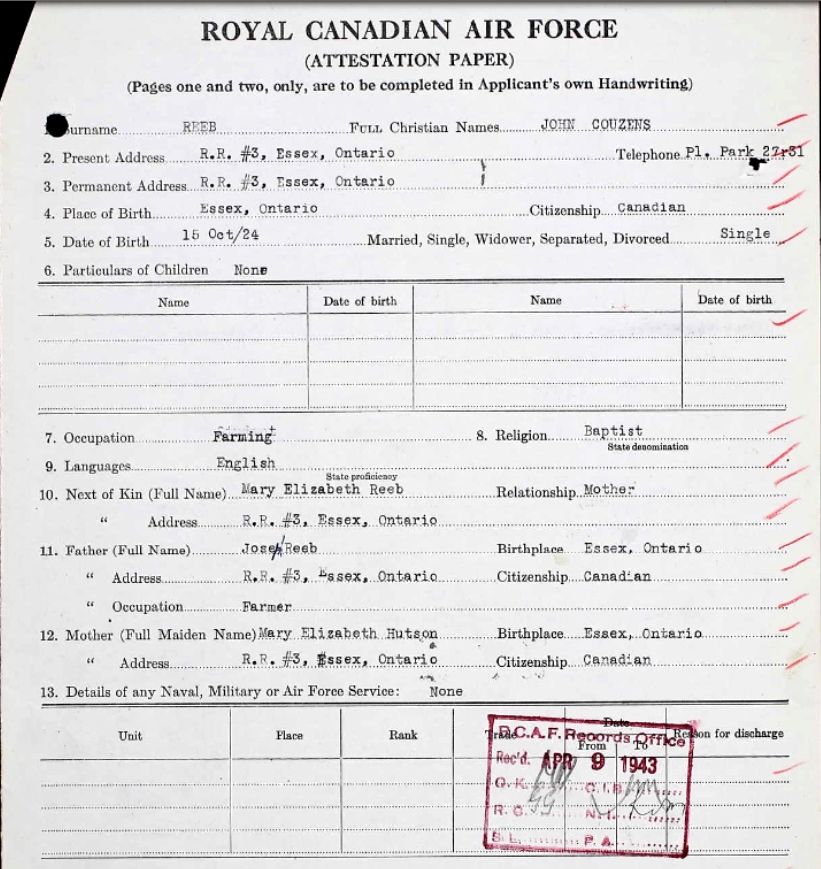 ROYAL CANADIAN AIR FORCE
(ATTESTATION PAPER)
(Pages one and two, only, are to be completed in Applicant's own Handwriting)
urname REEB FULL Christian Names JOHN COUZENS
2. Present Address R.R. #3, Essex, Ontario Telephone Pl. Park 27r31
3. Permanent Address R.R. #3, Essex, Ontario
4. Place of Birth Essex, Ontario Citizenship Canadian
5. Date of Birth 15 Oct/24 Married, Single, Widower, Separated, Divorced Single
6. Particulars of Children None
Name Date of birth Name Date of birth
7. Occupation Farming 8. Religion Baptist
State denomination
9. Languages English
State proficiency
10. Next of Kin (Full Name) Mary Elizabeth Reeb Relationship Mother
" Address R.R. #3, Essex, Ontario
11. Father (Full Name) Joseph Reeb Birthplace Essex, Ontario
" Address R.R. #3, Essex, Ontario Citizenship Canadian
" Occupation Farmer
12. Mother (Full Maiden Name) Mary Elizabeth Hutson Birthplace Essex, Ontario
" Address R.R. #3, Essex, Ontario Citizenship Canadian
13. Details of any Naval, Military or Air Force Service: None
Unit Place Rank Trade Date Reason for discharge
From To
R.C.A.F. Records Office
Rec'd. APR 9 1943
O. K. C.I.B.
R. G. N.I.
S. L. P. A.